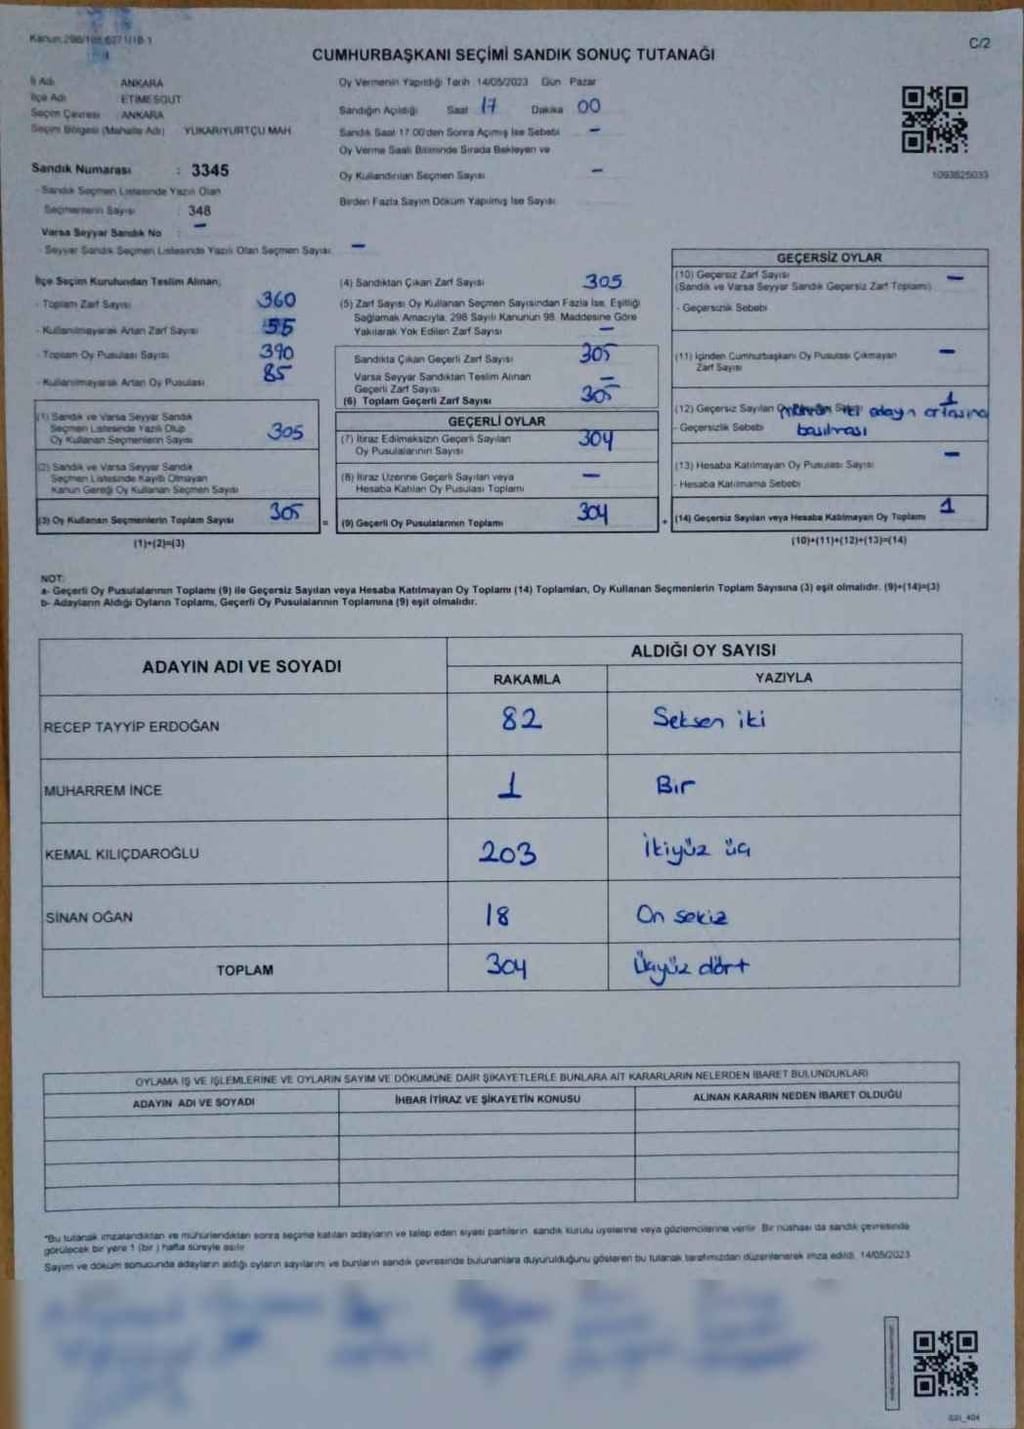 CUMHURBAŞKANI SEÇİMİ SANDIK SONUÇ TUTANAĞI
C/2
İl Adı ANKARA
İlçe Adı ETİMESGUT
Seçim Çevresi ANKARA
Seçim Bölgesi (Mahalle Adı) YUKARIYURTÇU MAH.
Sandık Numarası : 3345
- Sandık Seçmen Listesinde Yazılı Olan
Seçmenlerin Sayısı : 348
Varsa Seyyar Sandık No : -
- Seyyar Sandık Seçmen Listesinde Yazılı Olan Seçmen Sayısı -
Oy Vermenin Yapıldığı Tarih 14/05/2023 Gün Pazar
Sandığın Açıldığı Saat 17 Dakika 00
Sandık Saat 17.00'den Sonra Açılmış İse Sebebi -
Oy Verme Saati Bitiminde Sırada Bekleyen ve
Oy Kullandırılan Seçmen Sayısı -
Birden Fazla Sayım Döküm Yapılmış İse Sayısı
1093625033
İlçe Seçim Kurulundan Teslim Alınan;
- Toplam Zarf Sayısı 360
- Kullanılmayarak Artan Zarf Sayısı 55
- Toplam Oy Pusulası Sayısı 390
- Kullanılmayarak Artan Oy Pusulası 85
(1) Sandık ve Varsa Seyyar Sandık
Seçmen Listesinde Yazılı Olup
Oy Kullanan Seçmenlerin Sayısı 305
(2) Sandık ve Varsa Seyyar Sandık
Seçmen Listesinde Kayıtlı Olmayan
Kanun Gereği Oy Kullanan Seçmen Sayısı
(3) Oy Kullanan Seçmenlerin Toplam Sayısı 305 =
(1)+(2)=(3)
(4) Sandıktan Çıkan Zarf Sayısı 305
(5) Zarf Sayısı Oy Kullanan Seçmen Sayısından Fazla İse, Eşitliği
Sağlamak Amacıyla, 298 Sayılı Kanunun 98. Maddesine Göre
Yakılarak Yok Edilen Zarf Sayısı -
Sandıkta Çıkan Geçerli Zarf Sayısı 305
Varsa Seyyar Sandıktan Teslim Alınan
Geçerli Zarf Sayısı -
(6) Toplam Geçerli Zarf Sayısı 305
GEÇERLİ OYLAR
(7) İtiraz Edilmeksizin Geçerli Sayılan
Oy Pusulalarının Sayısı 304
(8) İtiraz Üzerine Geçerli Sayılan veya
Hesaba Katılan Oy Pusulası Toplamı -
(9) Geçerli Oy Pusulalarının Toplamı 304 +
GEÇERSİZ OYLAR
(10) Geçersiz Zarf Sayısı -
(Sandık ve Varsa Seyyar Sandık Geçersiz Zarf Toplamı)
- Geçersizlik Sebebi
(11) İçinden Cumhurbaşkanı Oy Pusulası Çıkmayan -
Zarf Sayısı
(12) Geçersiz Sayılan 1
- Geçersizlik Sebebi iki adayın ortasına
basılması
(13) Hesaba Katılmayan Oy Pusulası Sayısı -
- Hesaba Katılmama Sebebi
(14) Geçersiz Sayılan veya Hesaba Katılmayan Oy Toplamı 1
(10)+(11)+(12)+(13)=(14)
NOT:
a- Geçerli Oy Pusulalarının Toplamı (9) ile Geçersiz Sayılan veya Hesaba Katılmayan Oy Toplamı (14) Toplamları, Oy Kullanan Seçmenlerin Toplam Sayısına (3) eşit olmalıdır. (9)+(14)=(3)
b- Adayların Aldığı Oyların Toplamı, Geçerli Oy Pusulalarının Toplamına (9) eşit olmalıdır.
ADAYIN ADI VE SOYADI
ALDIĞI OY SAYISI
RAKAMLA YAZIYLA
RECEP TAYYİP ERDOĞAN 82 Seksen iki
MUHARREM İNCE 1 Bir
KEMAL KILIÇDAROĞLU 203 İkiyüz üç
SİNAN OĞAN 18 On sekiz
TOPLAM 304 Üçyüz dört
OYLAMA İŞ VE İŞLEMLERİNE VE OYLARIN SAYIM VE DÖKÜMÜNE DAİR ŞİKAYETLERLE BUNLARA AİT KARARLARIN NELERDEN İBARET BULUNDUKLARI
ADAYIN ADI VE SOYADI İHBAR İTİRAZ VE ŞİKAYETİN KONUSU ALINAN KARARIN NEDEN İBARET OLDUĞU
*Bu tutanak imzalandıktan ve mühürlendikten sonra seçime katılan adayların ve talep eden siyasi partilerin sandık kurulu üyelerine veya gözlemcilerine verilir. Bir nüshası da sandık çevresinde
görülecek bir yere 1 (bir) hafta süreyle asılır
Sayım ve döküm sonucunda adayların aldığı oyların sayılarını ve bunların sandık çevresinde bulunanlara duyurulduğunu gösteren bu tutanak tarafımızdan düzenlenerek imza edildi. 14/05/2023